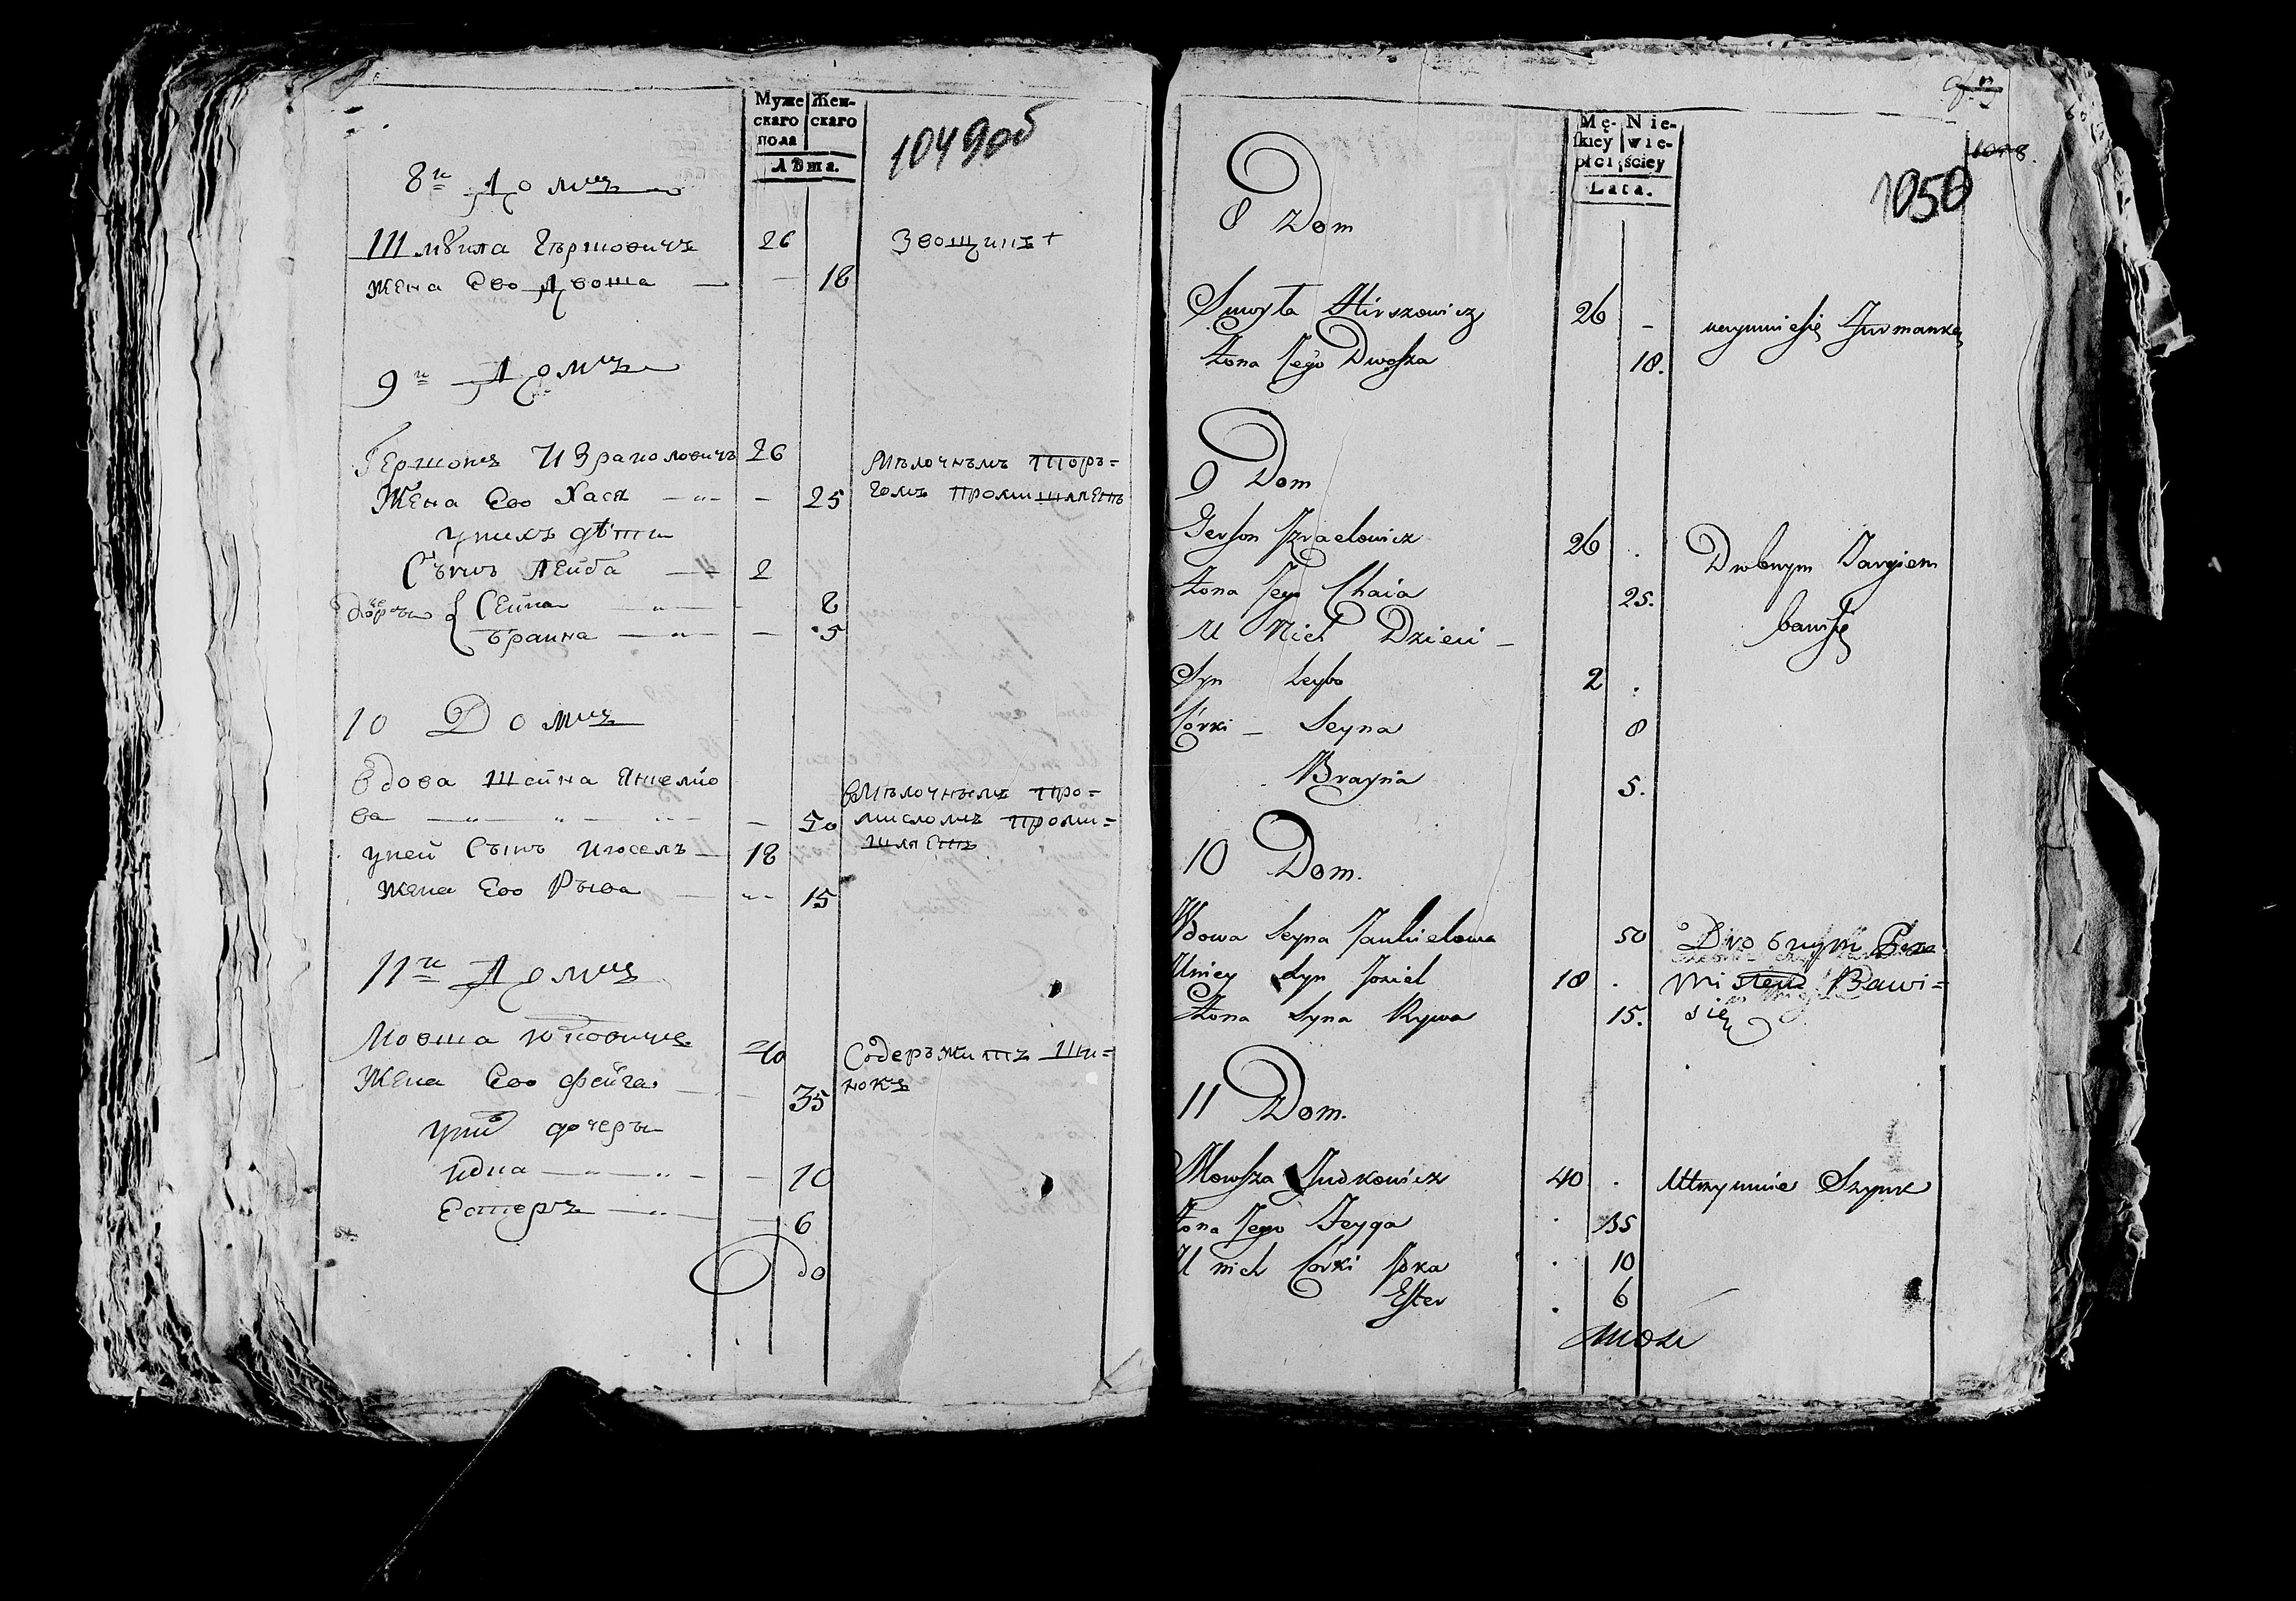 Муже
скаго
пола
Жен-
скаго
Лѣта.
1049 об
8й Домъ
Шмуила Гѣршовичъ 26
Жена Ево Двоша — — 18
9й Домъ
Гершонъ Израиловичъ 26 Мѣлочнымъ торъ=
Жена Ево Хася — — 25 гомъ промишляетъ
у нихъ дѣти
Сынъ Лейба — 2
Дочеры { Сейна — 8
Браина — — 5
10 Домъ
Вдова Шейна Янкелио
ва — — 50
Мѣлочнымъ про=
мисломъ проми=
шляетъ
у ней Сынъ Иосель — 18
Жена Ево Рыва — 15
11й Домъ
Мовша Юдковичъ 40 Содержитъ Ши=
Жена Ево Фейга — 35 нокъ
у нихъ дочеры
Идка — — 10
Естеръ — — 6
до
Mę-
ſkiey
płci
Nie-
wie-
ściey
Lata.
1048.
1050
8 Dom
Smoyła Hirszowicz 26 –
Żona Jego Dwoſza 18.
9 Dom
Gerſon Jzraelowicz 26 . Drobnym Targiem
Żona Jego Chaia 25. bawiſię
U Nich Dzieci –
Syn Leybo 2 .
Córki – Seyna 8
Brayna 5.
10 Dom.
Wdowa Seyna Jankielowa 50 Drobnym Prze
U niey Syn Joziel 18 . misłem Bawi=
Żona Syna Rywa 15. się
11 Dom.
Mowſza Judkowicz 40 . Utrzymuie Szynk
Żona Jego Feyga . 35
U nich Córki Jdka . 10
Eſter . 6